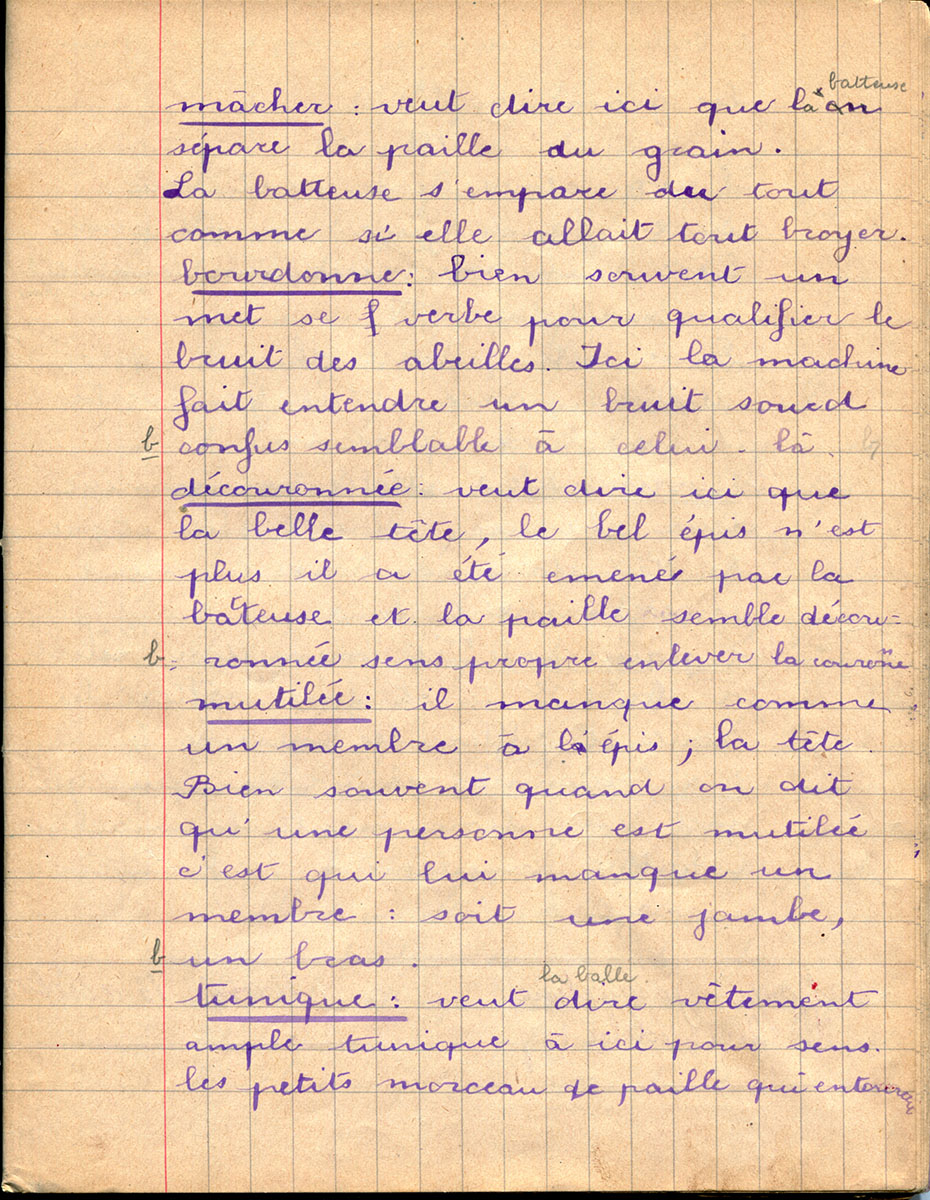 mâcher : veut dire ici que la batteuse
sépare la paille du grain.
La batteuse s'empare du tout
comme si elle allait tout broyer.
bourdonne : bien souvent un
met se verbe pour qualifier le
bruit des abeilles. Ici la machine
fait entendre un bruit sourd
b confus semblable à celui-là.
découronnée : veut dire ici que
la belle tête, le bel épis n'est
plus il a été emené par la
batteuse et la paille semble décou=
b = ronnée sens propre enlever la couronne
mutilée : il manque comme
un membre à l'épis ; la tête.
Bien souvent quand on dit
qu'une personne est mutilée
c'est qui lui manque un
membre : soit une jambe,
b un bras.
la balle
tunique : veut dire vêtement
ample tunique à ici pour sens.
les petits morceau de paille qui entourent